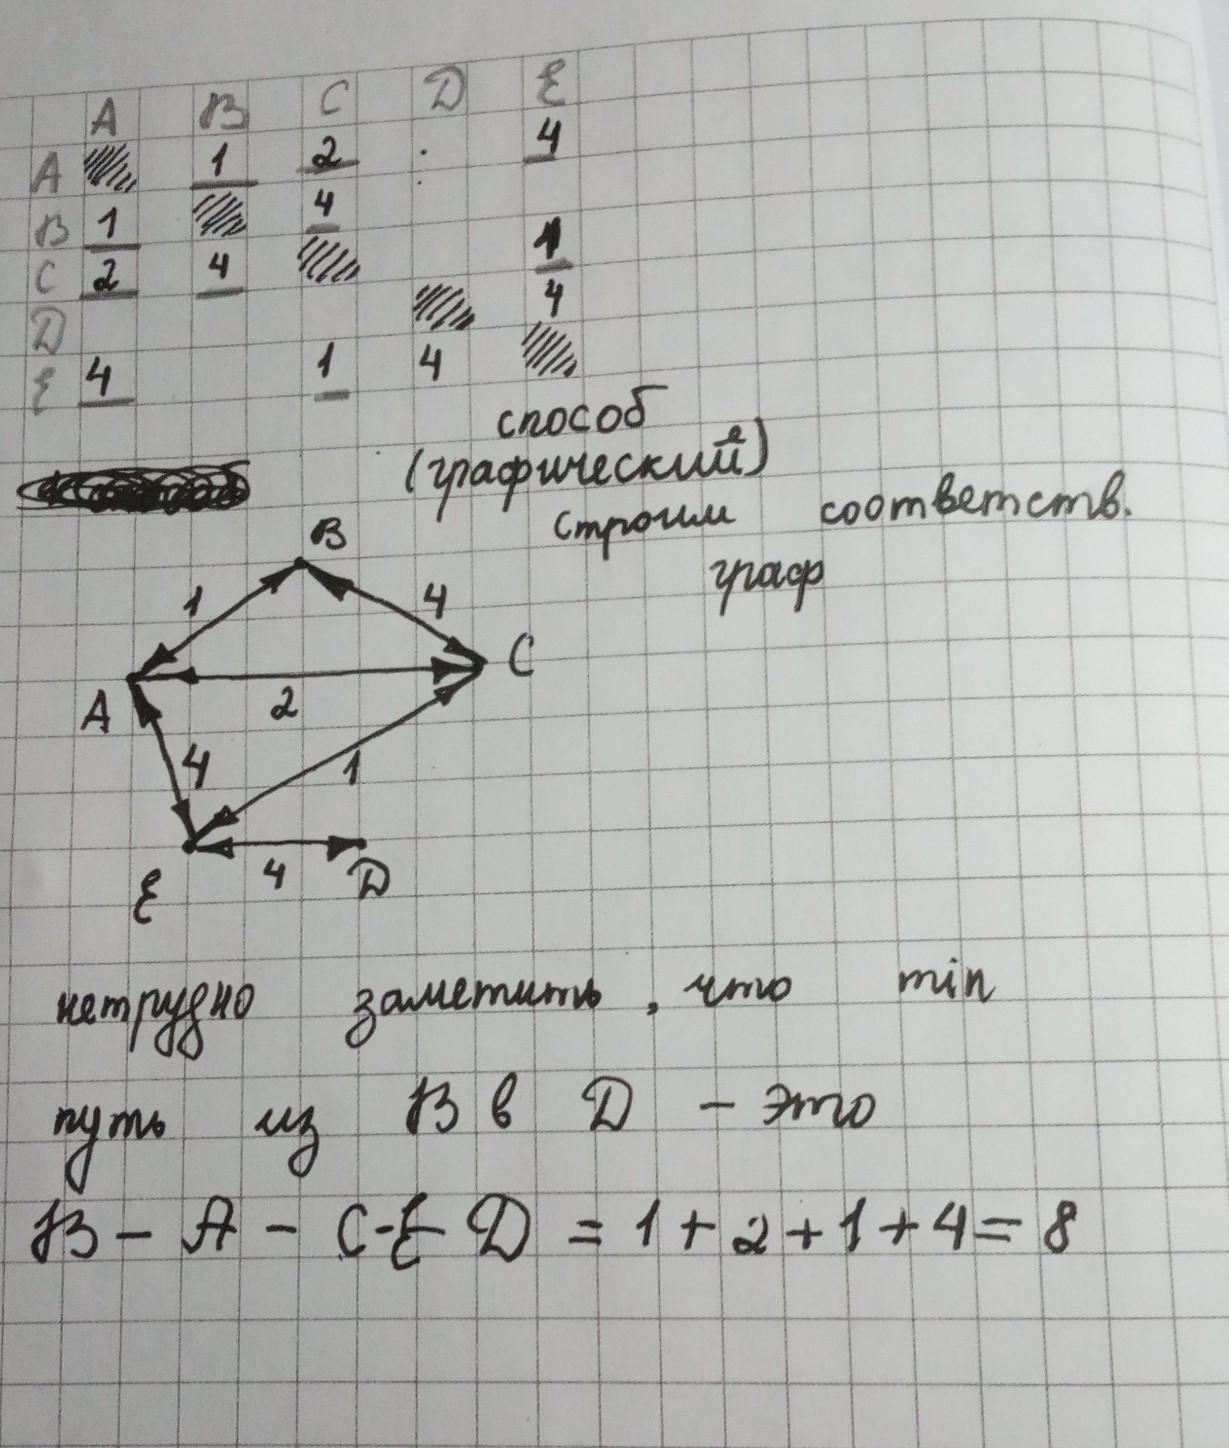 A B C D E
A 1 2 4
B 1 4
C 2 4 1
D 4
E 4 1 4
способ
(графический)
строим соответств.
граф
B
1 4
C
A 2
4 1
4
E D
нетрудно заметить, что min
путь из B в D - это
B - A - C - E - D = 1 + 2 + 1 + 4 = 8